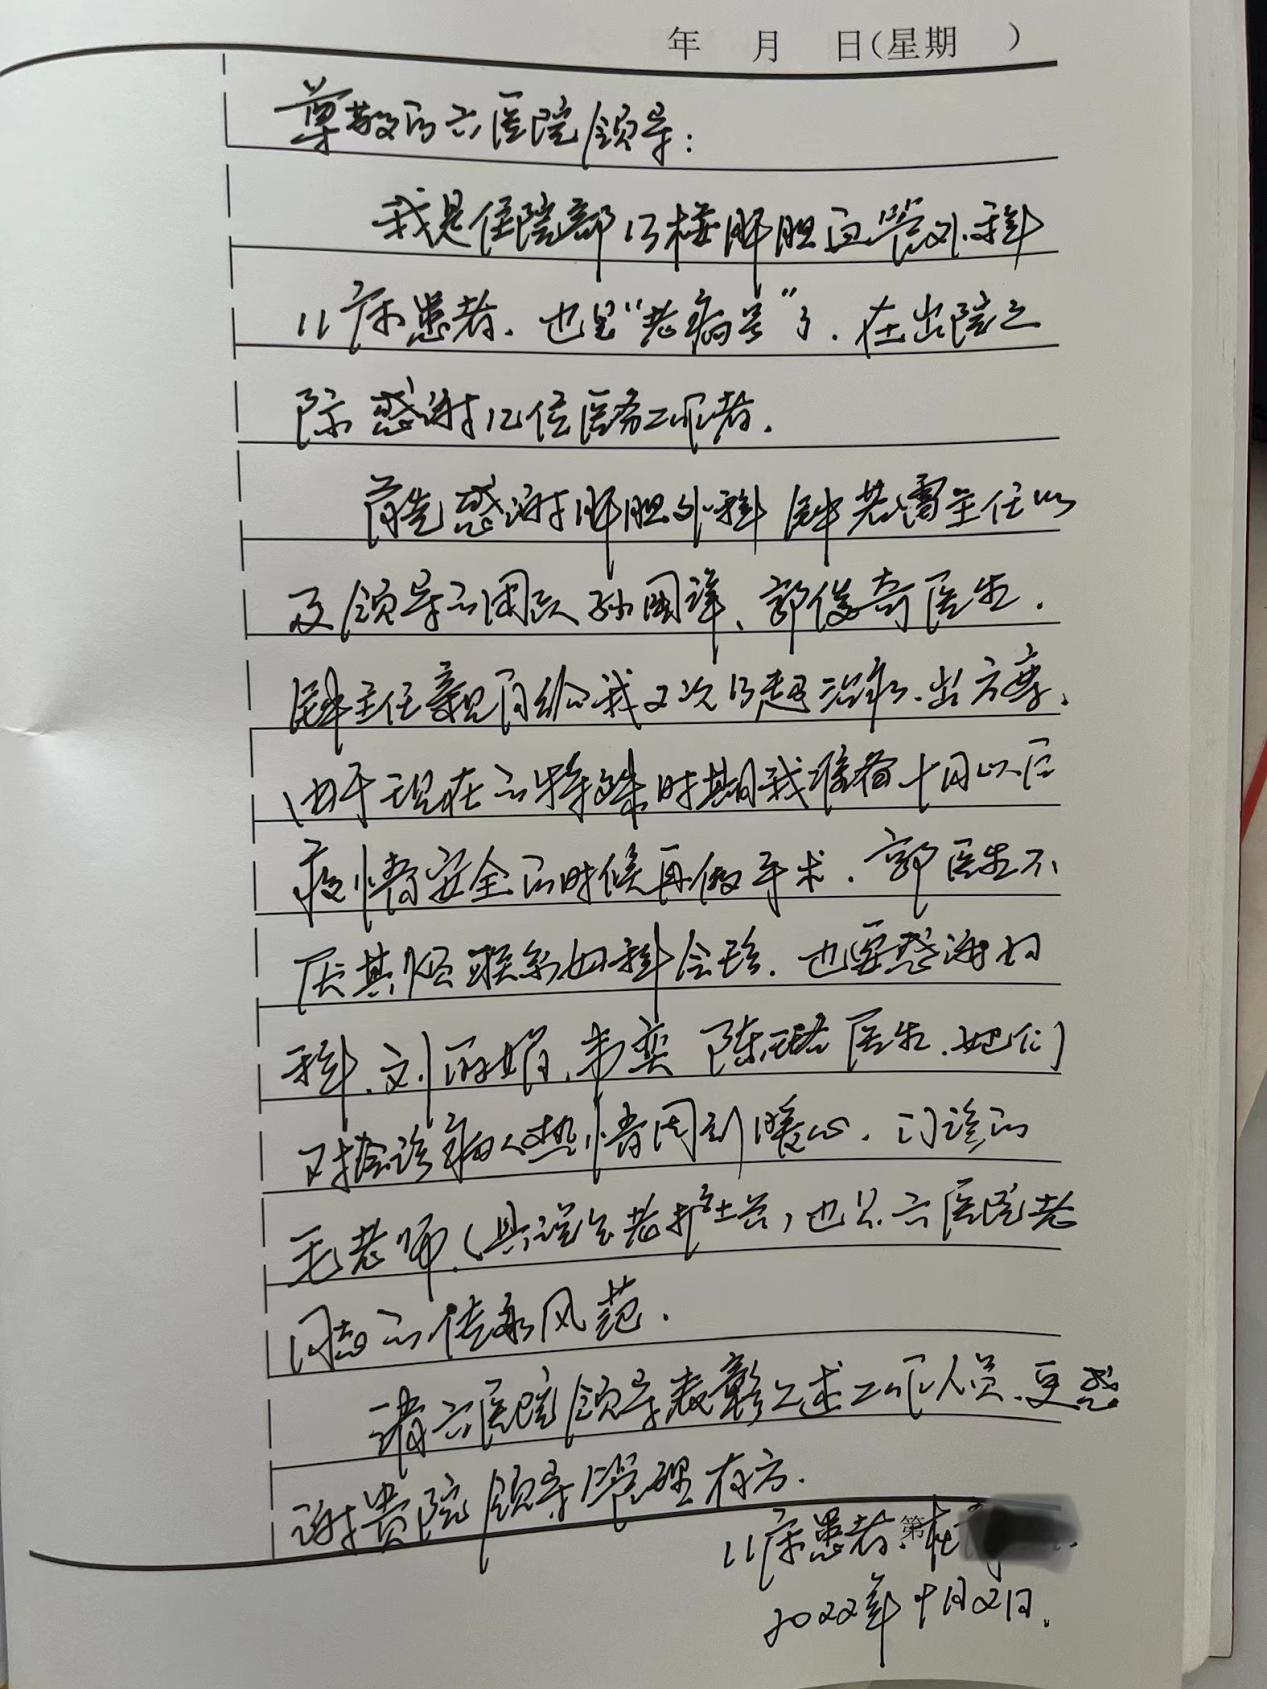 年 月 日(星期 )
尊敬的六医院领导:
我是住院部13楼肝胆血管外科
11床患者.也是“老病号”了.在出院之
际感谢几位医务工作者.
首先感谢肝胆外科 主任以
及领导的团队孙国锋、郭俊奇医生.
主任亲自给我二次B超治疗.出方案、
由于现在的特殊时期我准备十月以后
疫情安全的时候再做手术.郭医生不
厌其烦联系妇科会诊.也要感谢妇
科、刘丽娟、朱奕 陈珺医生.她们
对接诊病人热情周到暖心.门诊的
毛老师(具说是老护士长)也是六医院老
同志的传承风范.
请六医院领导表彰上述工作人员、更感
谢贵院领导管理有方.
11床患者. 第
2022年9月2日.